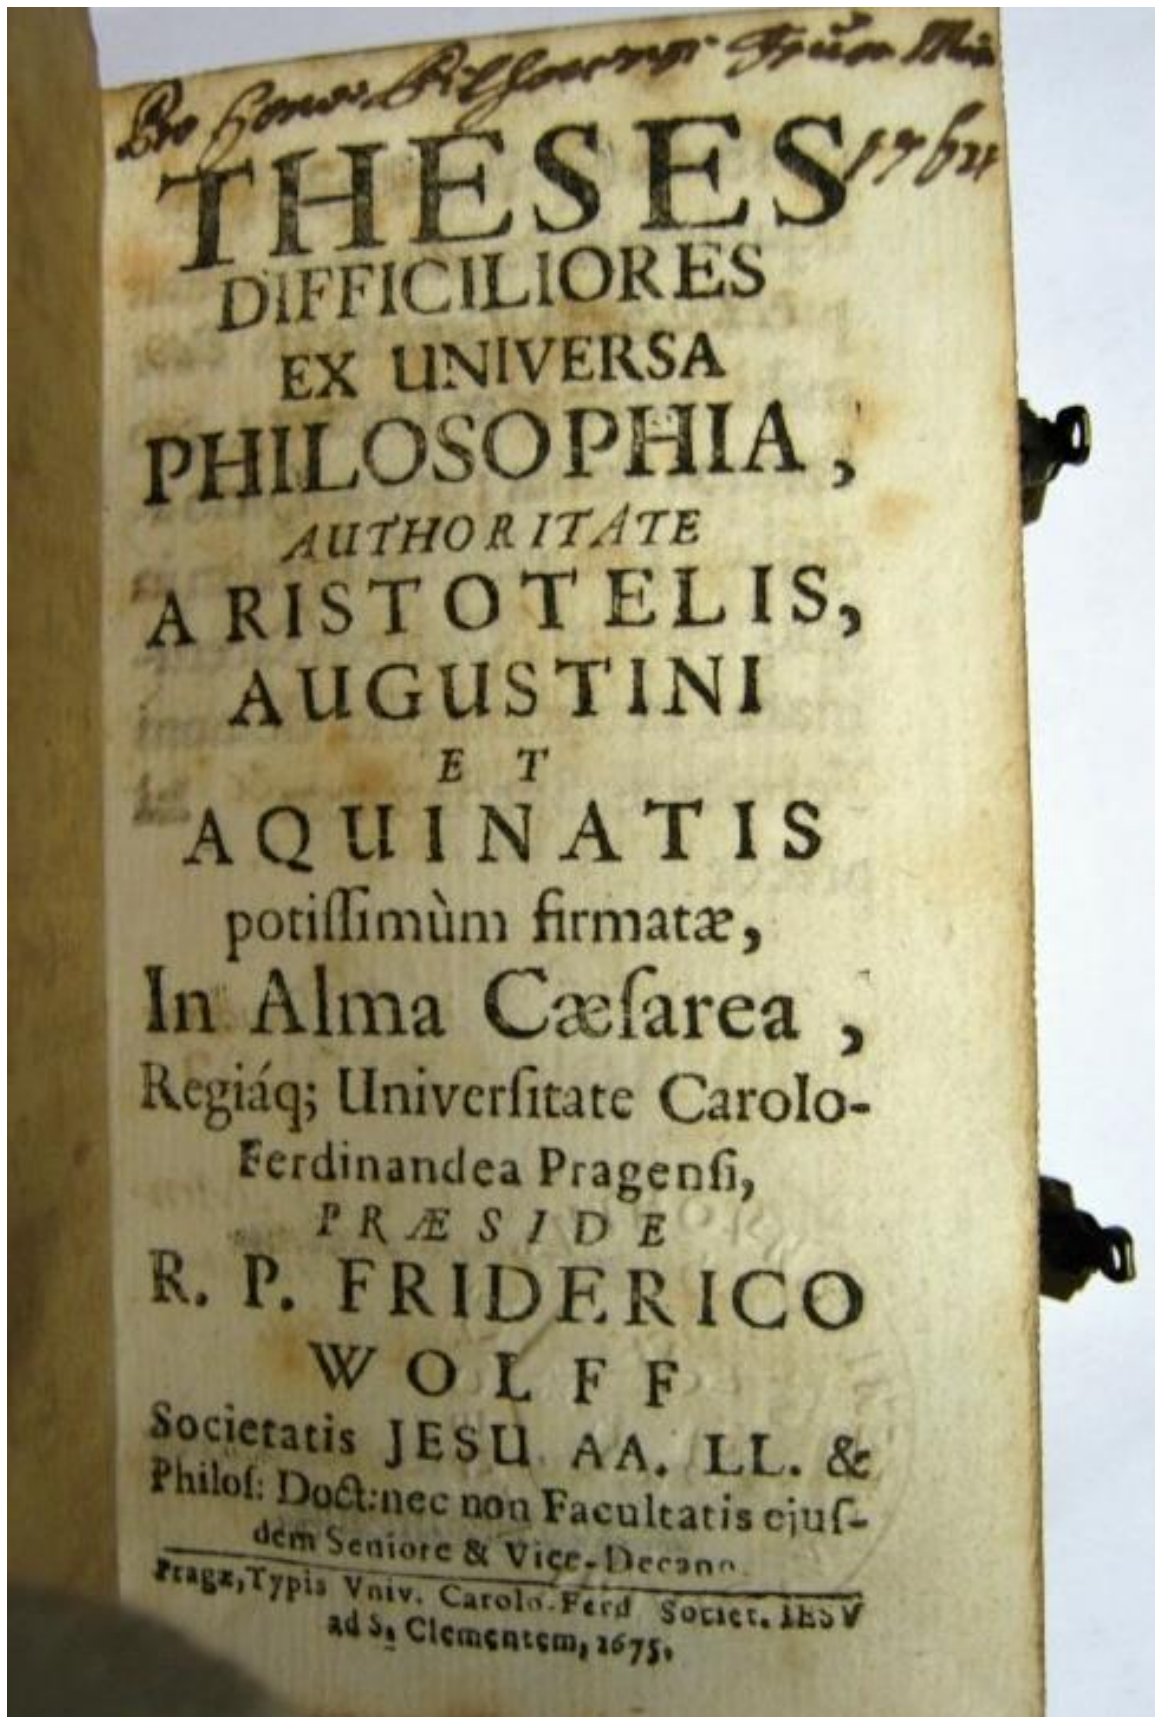 1764
THESES
DIFFICILIORES
EX UNIVERSA
PHILOSOPHIA,
AUTHORITATE
ARISTOTELIS,
AUGUSTINI
ET
AQUINATIS
potiſſimùm firmatæ,
In Alma Cæſarea,
Regiáq; Univerſitate Carolo-
Ferdinandea Pragenſi,
PRÆSIDE
R. P. FRIDERICO
WOLFF
Societatis JESU AA. LL. &
Philoſ: Doct: nec non Facultatis ejuſ-
dem Seniore & Vice-Decano.
Pragæ, Typis Vniv. Carolo-Ferd Societ. IESV
ad S. Clementem, 1675.